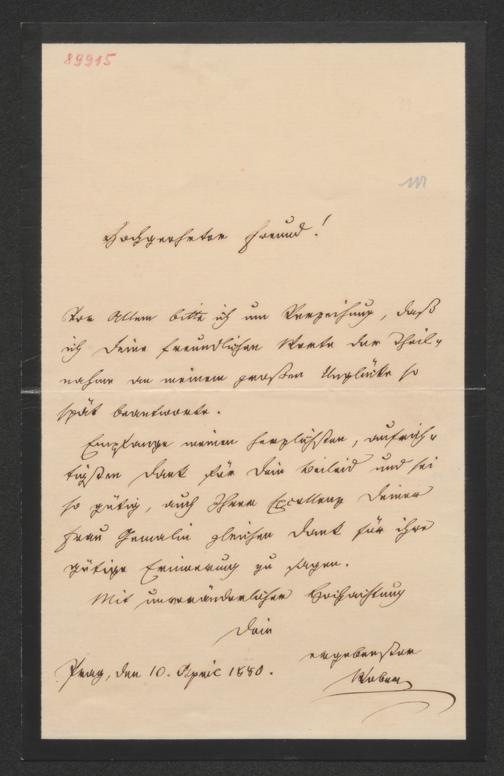 89915
Hochgeehrter Freund!
Vor Allem bitte ich um Verzeihung, daß
ich Deine freundlichen Worte der Theil-
nahme an meinem großen Unglücke so
spät beantworte.
Empfange meinen herzlichsten, aufrich-
tigsten Dank für Dein Beileid und sei
so gütig, auch Ihrer Excellenz Deiner
Frau Gemalin gleichen Dank für ihre
gütige Erinnerung zu sagen.
Mit unveränderlicher Hochachtung
Dein
ergebenster
Prag, den 10. April 1880.
Weber